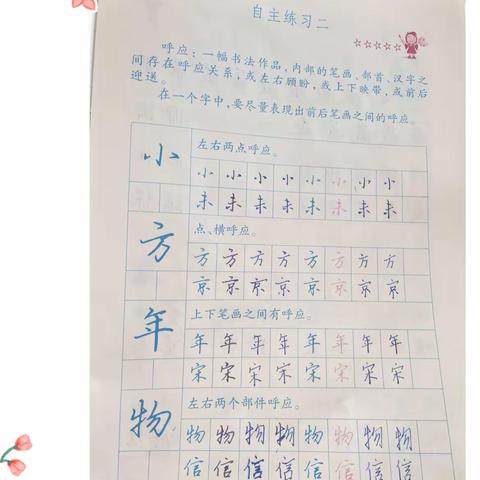 自主练习二
☆☆☆☆☆
呼应：一幅书法作品，内部的笔画、部首、汉字之
间存在呼应关系，或左右顾盼，或上下映带，或前后
迎送。
在一个字中，要尽量表现出前后笔画之间的呼应。
小
左右两点呼应。
小 小 小 小 小 小 小 小
未 未 未 未 未 未 未 未
方
点、横呼应。
方 方 方 方 方 方 方 方
京 京 京 京 京 京 京 京
年
上下笔画之间有呼应。
年 年 年 年 年 年 年 年
宋 宋 宋 宋 宋 宋 宋 宋
物
左右两个部件呼应。
物 物 物 物 物 物 物 物
信 信 信 信 信 信 信 信